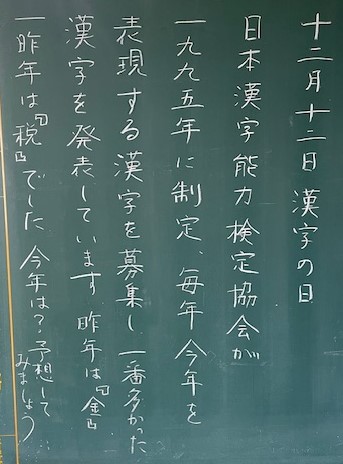 十二月十二日 漢字の日
日本漢字能力検定協会が
一九九五年に制定、毎年今年を
表現する漢字を募集し一番多かった
漢字を発表しています 昨年は『金』
一昨年は『税』でした 今年は？予想して
みましょう